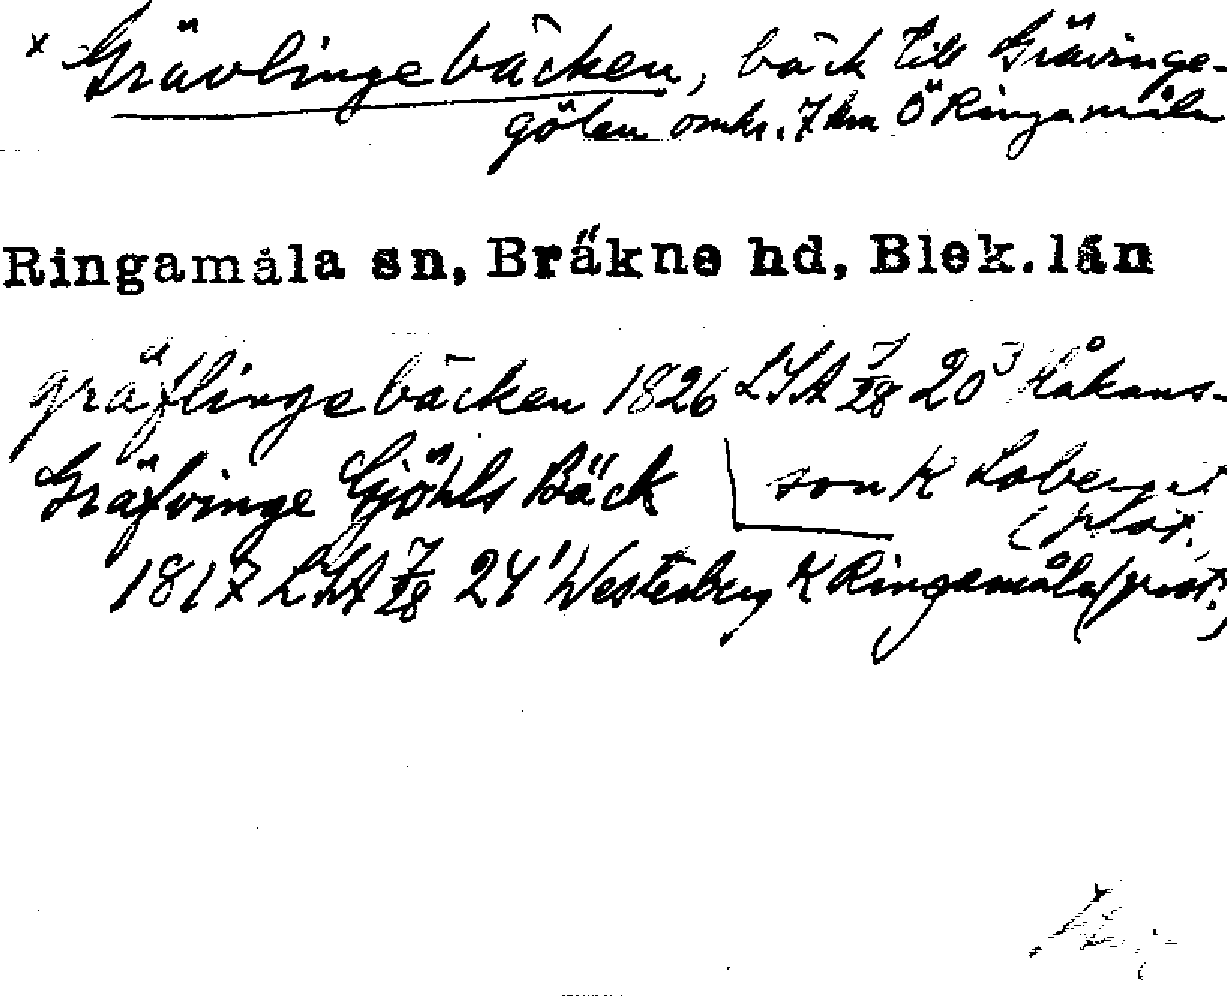 x Grävlingebäcken, bäck till Grävinge-
gölen omkr. 7 km Ö Ringamåla
Ringamåla sn, Bräkne hd, Blek. län
gräflingebäcken 1826 LSA 7/28 20³ Håkans-
son K
Gräfvinge Gjöhls Bäck
1817 LSA 7/28 24¹ Westerberg K Ringamåla (prot.)